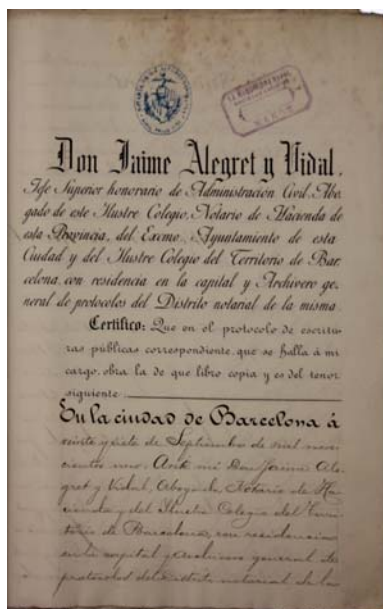 Don Jaime Alegret y Vidal,
Jefe Superior honorario de Administración Civil, Abo-
gado de este Ilustre Colegio, Notario de Hacienda de
esta Provincia, del Excmo. Ayuntamiento de esta
Ciudad y del Ilustre Colegio del Territorio de Bar-
celona, con residencia en la capital y Archivero ge-
neral de protocolos del Distrito notarial de la misma.
Certifico: Que en el protocolo de escritu-
ras públicas correspondiente, que se halla á mi
cargo, obra la de que libro copia y es del tenor
siguiente
En la ciudad de Barcelona á
veinte y siete de Septiembre de mil nove-
cientos uno. Ante mi Don Jaime Ale-
gret y Vidal, Abogado, Notario de Ha-
cienda y del Ilustre Colegio del Terri-
torio de Barcelona, con residencia
en la capital y Archivero general de
protocolos del distrito notarial de la